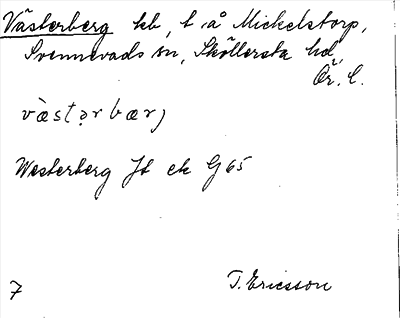 Västerberg hb, t å Mickelstorp,
Svennevads sn, Sköllersta hd,
Ör. l.
vàstərbærj
Westerberg Jt ek G 65
7 T. Ericsson